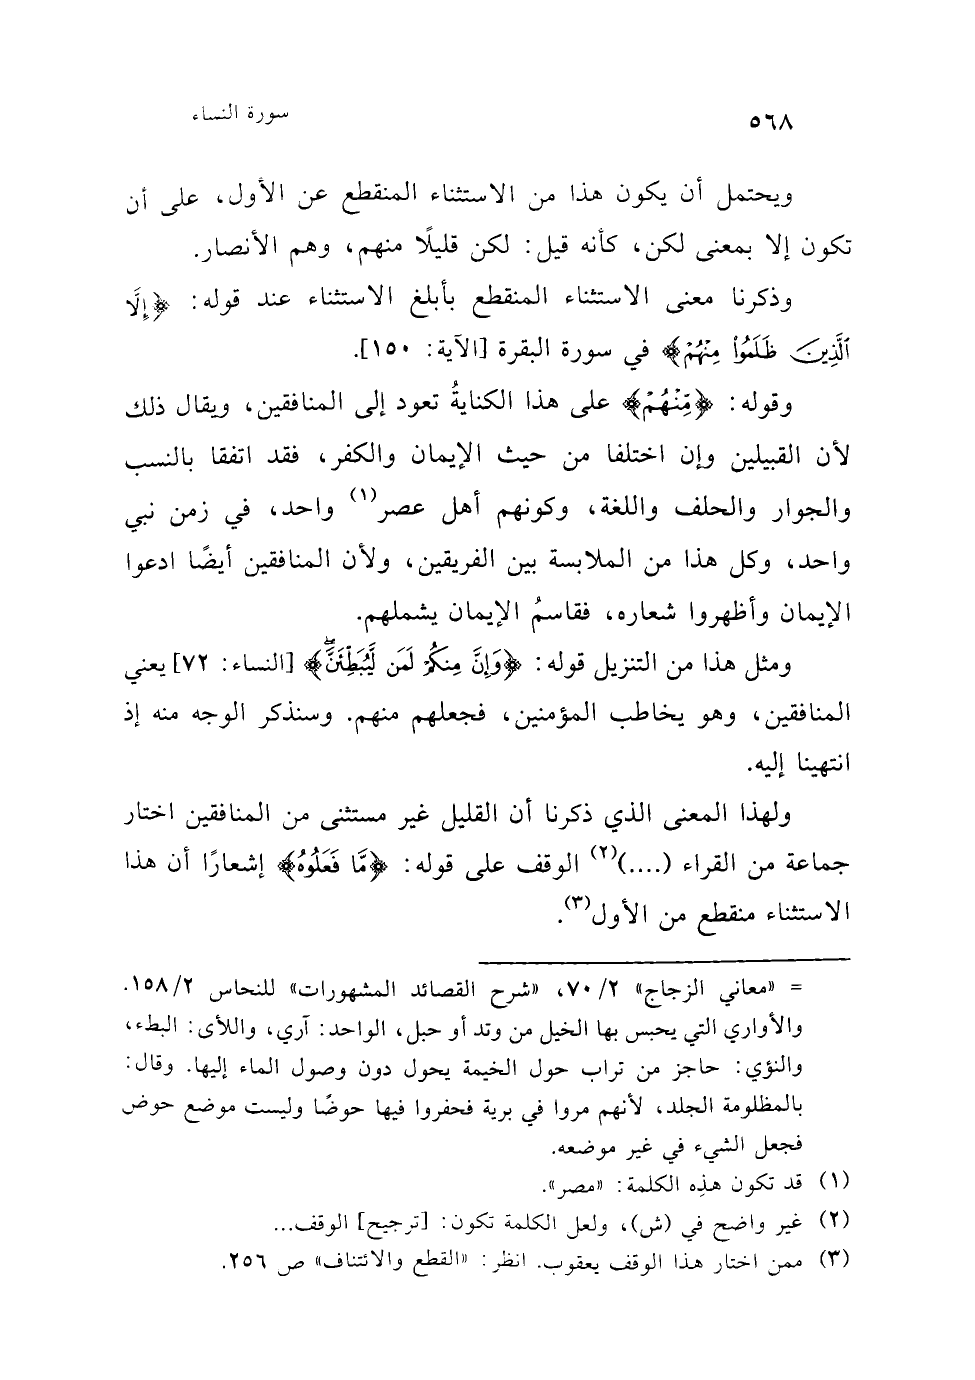 ٥٦٨ سورة النساء
ويحتمل أن يكون هذا من الاستثناء المنقطع عن الأول، على أن
تكون إلا بمعنى لكن، كأنه قيل: لكن قليلًا منهم، وهم الأنصار.
وذكرنا معنى الاستثناء المنقطع بأبلغ الاستثناء عند قوله: ﴿إِلَّا
ٱلَّذِينَ ظَلَمُوا۟ مِنْهُمْ﴾ في سورة البقرة [الآية: ١٥٠].
وقوله: ﴿مِّنْهُمْ﴾ على هذا الكنايةُ تعود إلى المنافقين، ويقال ذلك
لأن القبيلين وإن اختلفا من حيث الإيمان والكفر، فقد اتفقا بالنسب
والجوار والحلف واللغة، وكونهم أهل عصر(١) واحد، في زمن نبي
واحد، وكل هذا من الملابسة بين الفريقين، ولأن المنافقين أيضًا ادعوا
الإيمان وأظهروا شعاره، فقاسمُ الإيمان يشملهم.
ومثل هذا من التنزيل قوله: ﴿وَإِنَّ مِنكُمْ لَمَن لَّيُبَطِّئَنَّۖ﴾ [النساء: ٧٢] يعني
المنافقين، وهو يخاطب المؤمنين، فجعلهم منهم. وسنذكر الوجه منه إذ
انتهينا إليه.
ولهذا المعنى الذي ذكرنا أن القليل غير مستثنى من المنافقين اختار
جماعة من القراء (....)(٢) الوقف على قوله: ﴿مَّا فَعَلُوهُ﴾ إشعارًا أن هذا
الاستثناء منقطع من الأول(٣).
= «معاني الزجاج» ٢/ ٧٠، «شرح القصائد المشهورات» للنحاس ٢/ ١٥٨.
والأواري التي يحبس بها الخيل من وتد أو حبل، الواحد: آري، واللأى: البطء،
والنؤي: حاجز من تراب حول الخيمة يحول دون وصول الماء إليها. وقال:
بالمظلومة الجلد، لأنهم مروا في برية فحفروا فيها حوضًا وليست موضع حوض
فجعل الشيء في غير موضعه.
(١) قد تكون هذِه الكلمة: «مصر».
(٢) غير واضح في (ش)، ولعل الكلمة تكون: [ترجيح] الوقف...
(٣) ممن اختار هذا الوقف يعقوب. انظر: «القطع والائتناف» ص ٢٥٦.